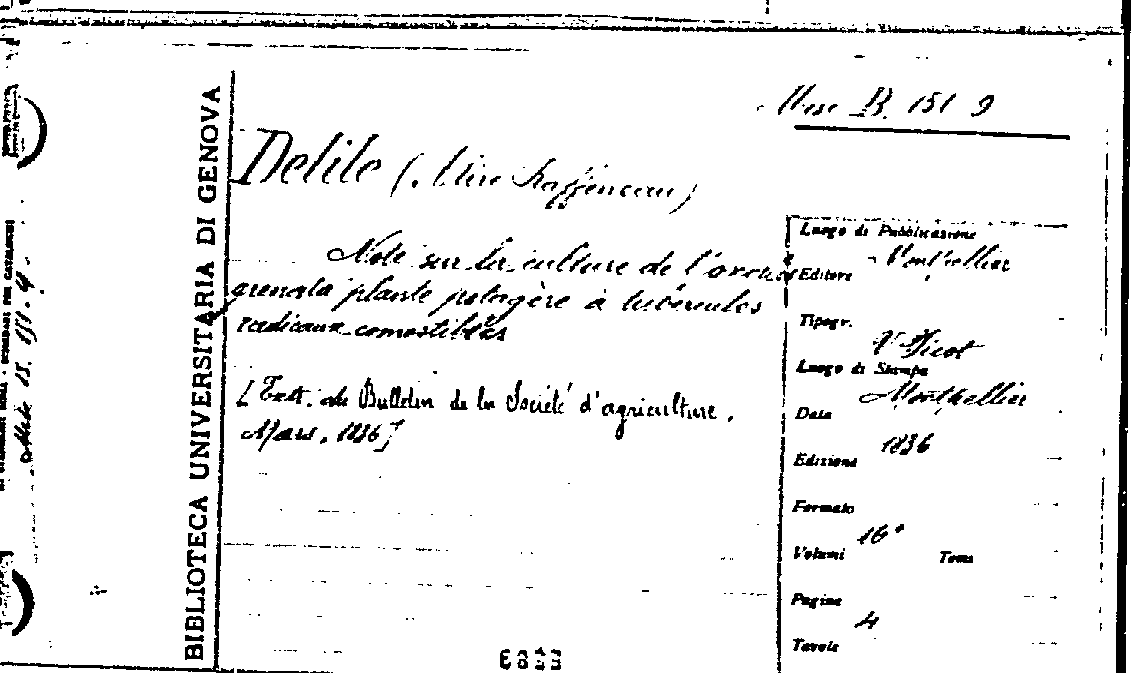 Misc B. 151 9
Delile (Alire Raffeneau)
Note sur la culture de l'
grenata plante potagère à tubercules
radicaux comestibles
[Extr. du Bulletin de la Société d'agriculture.
Mars. 1836]
BIBLIOTECA UNIVERSITARIA DI GENOVA
Luogo di Pubblicazione
Montpellier
Editore
Tipogr.
Luogo di Stampa
Montpellier
Data
1836
Edizione
Formato
16°
Volumi Tomi
Pagine
4
Tavole